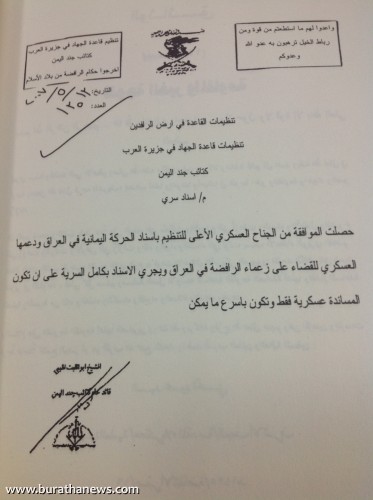 واعدوا لهم ما استطعتم من قوة ومن
رباط الخيل ترهبون به عدو الله
وعدوكم
تنظيم قاعدة الجهاد في جزيرة العرب
كتائب جند اليمن
اخرجوا حكام الرافضة من بلاد الأسلام
التاريخ:
العدد: ١٢٥
تنظيمات القاعدة في ارض الرافدين
تنظيمات قاعدة الجهاد في جزيرة العرب
كتائب جند اليمن
م/ اسناد سري
حصلت الموافقة من الجناح العسكري الأعلى للتنظيم بأسناد الحركة اليمانية في العراق ودعمها
العسكري للقضاء على زعماء الرافضة في العراق ويجري الاسناد بكامل السرية على ان تكون
المساندة عسكرية فقط وتكون باسرع ما يمكن
الشيخ ابو
قائد عام كتائب جند اليمن
www.burathanews.com